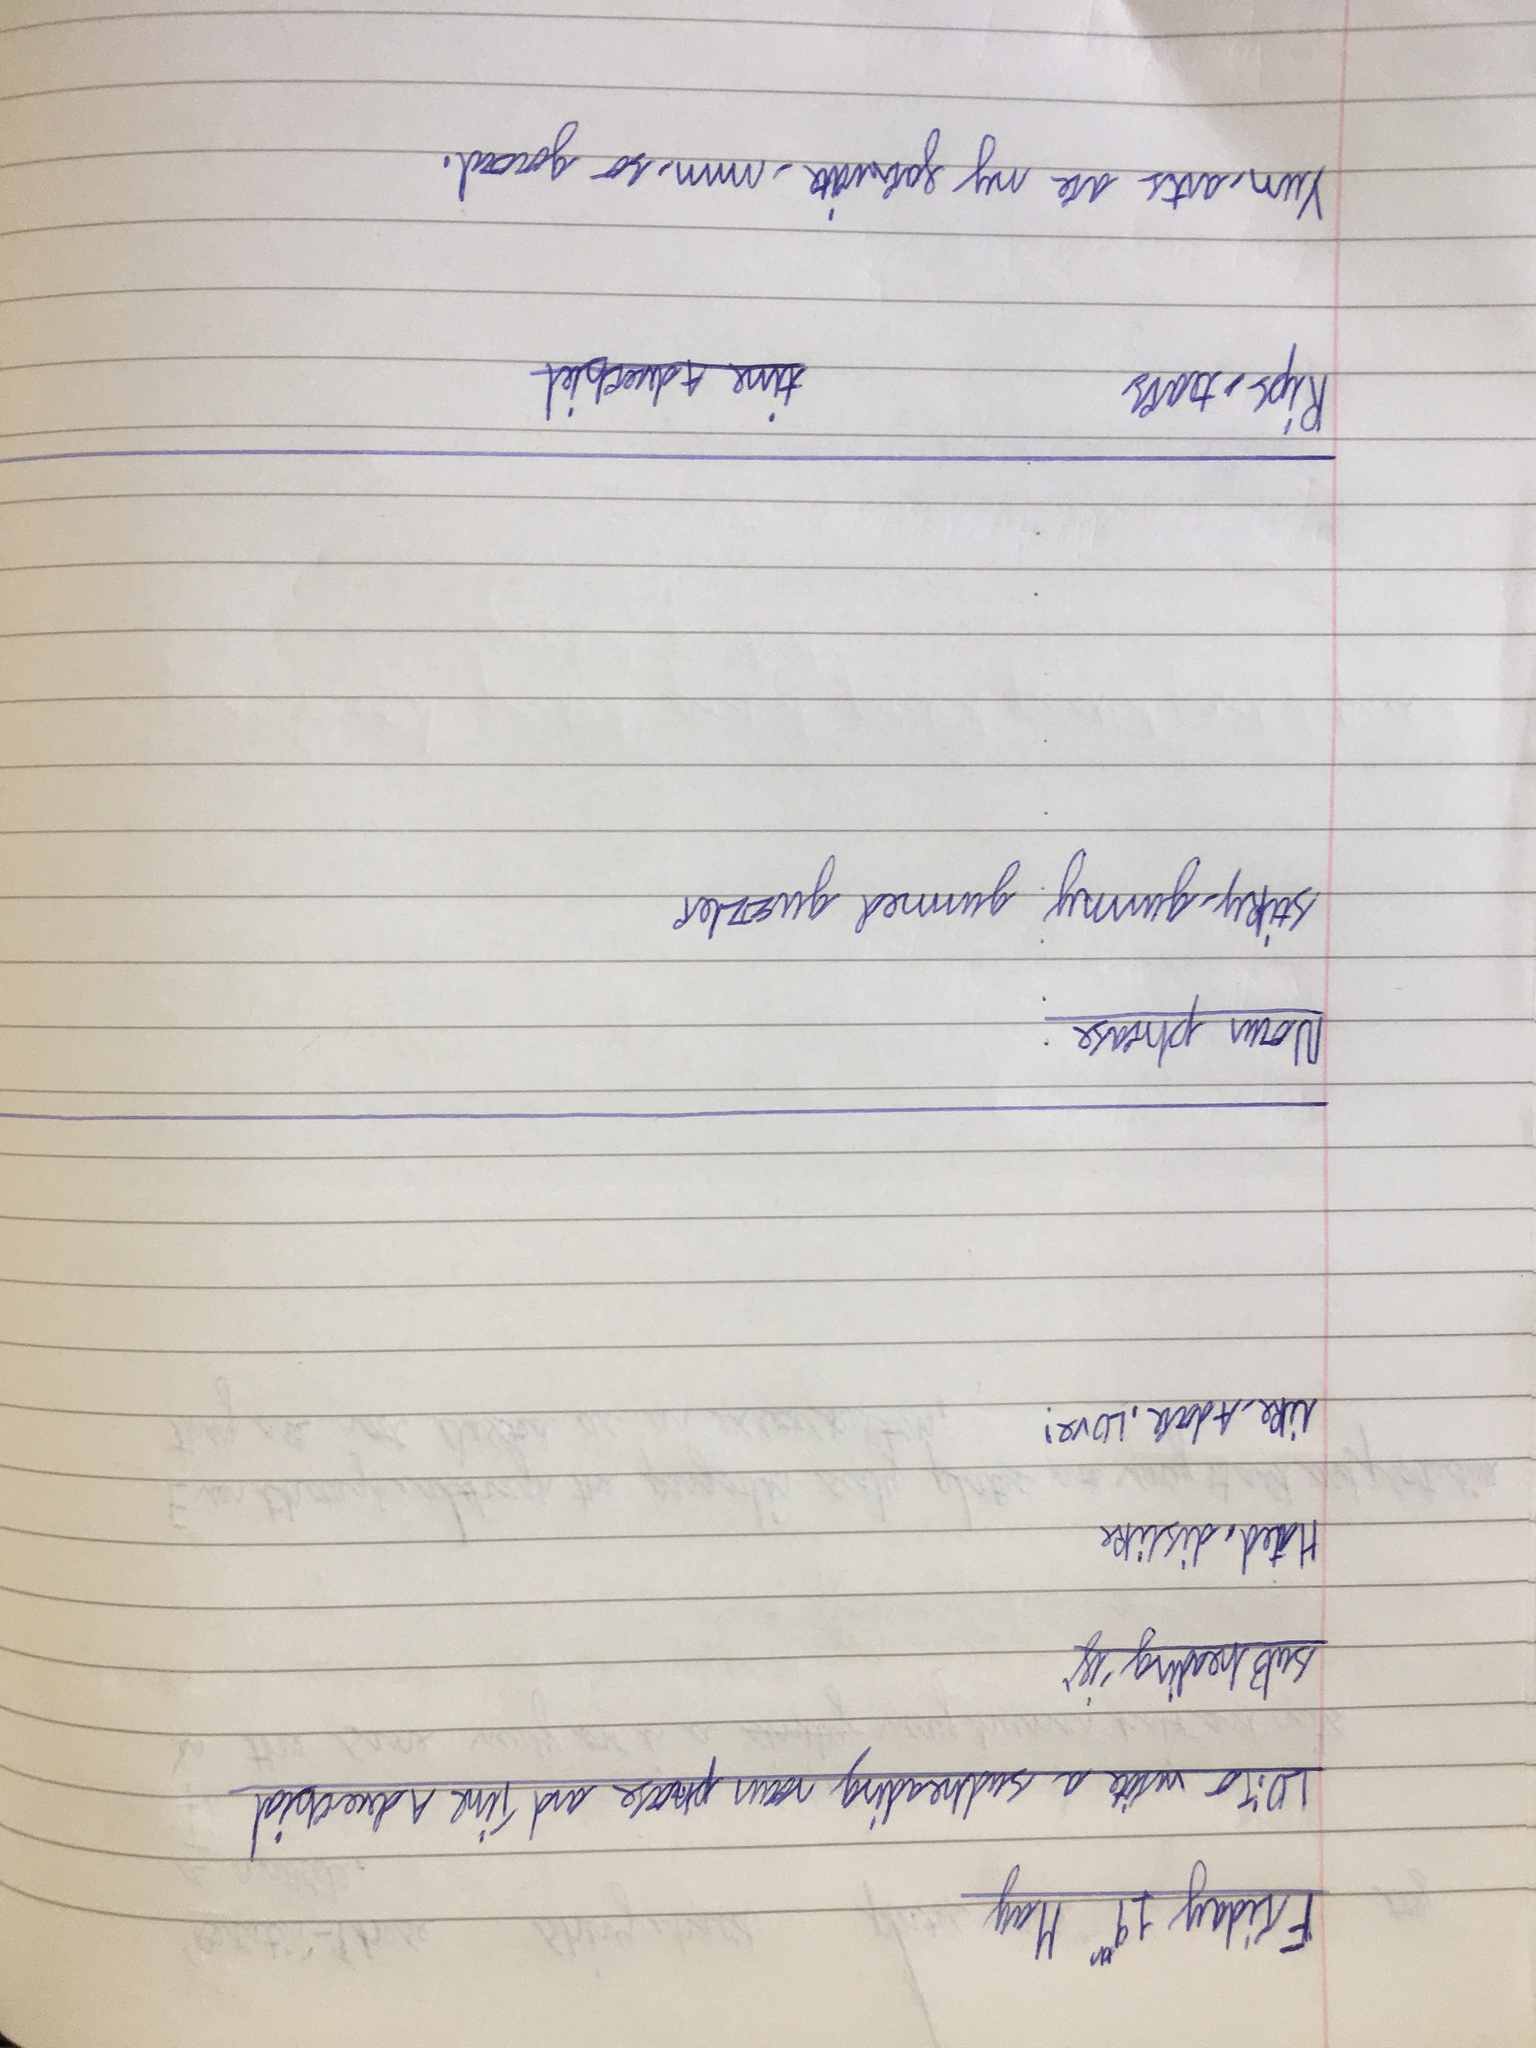 Friday 19th May
LO: To write a subheading noun phrase and Time Adverbial
suBheading 'ig'
Hated, dislike
like, Adore, Love!
Noun phrase
stiky-gummy gummed guzzler
Rips, tears time Adverbial
Yum, arts are my fabruite, mmm, so gooood.